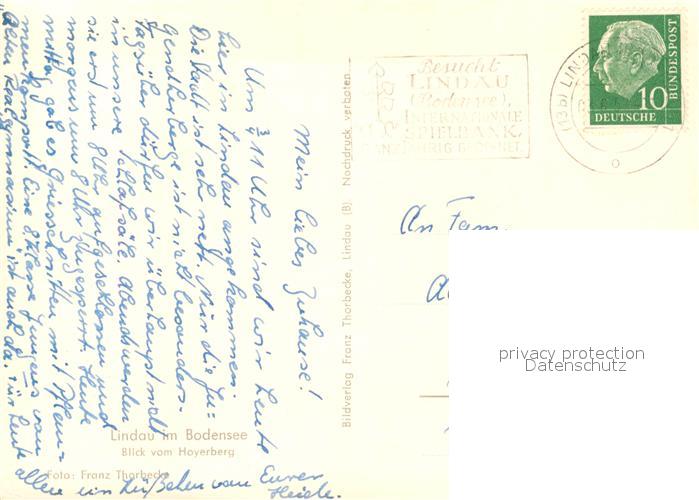 Mein liebes Zuhause!
Um ¾ 11 Uhr sind wir heute
hier in Lindau angekommen.
Die Stadt ist sehr nett. Nur die Ju-
gendherberge ist nicht besonders.
Tagsüber dürfen wir überhaupt nicht
in unsere Schlafsäle. Abends werden
sie erst um 8 Uhr aufgeschlossen und
morgens um 8 Uhr zugesperrt. Heute
mittag gab es Griesschnitten mit Pflau-
menkompott. Eine 8. Klasse Jungens vom
"Alten Realgymnasium" ist auch da. Für heute
allen ein Grüßchen von Eurer
Heide.
Lindau im Bodensee
Blick vom Hoyerberg
Foto: Franz Thorbecke
Bildverlag Franz Thorbecke, Lindau (B) Nachdruck verboten
Besucht
LINDAU
(Bodensee),
INTERNATIONALE
SPIELBANK,
GANZJÄHRIG GEÖFFNET.
(13b) LINDAU
10
DEUTSCHE
BUNDESPOST
An Fam.
privacy protection
Datenschutz